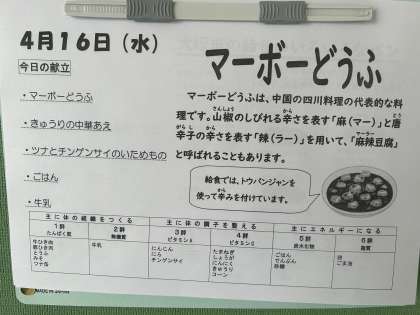 4月16日（水）
今日の献立
マーボーどうふ
・マーボーどうふ
・きゅうりの中華あえ
・ツナとチンゲンサイのいためもの
・ごはん
・牛乳
マーボーどうふは、中国の四川料理の代表的な料
理です。山椒のしびれる辛さを表す「麻（マー）」と唐
辛子の辛さを表す「辣（ラー）」を用いて、「麻辣豆腐」
と呼ばれることもあります。
給食では、トウバンジャンを
使って辛みを付けています。
主に体の組織をつくる 主に体の調子を整える 主にエネルギーになる
1群 2群 3群 4群 5群 6群
たんぱく質 無機質 ビタミンA ビタミンC 炭水化物 脂質
牛ひき肉
豚ひき肉
とうふ
みそ
ツナ缶
牛乳
にんじん
にら
チンゲンサイ
たまねぎ
しょうが
にんにく
きゅうり
コーン
ごはん
でんぷん
砂糖
油
ごま油